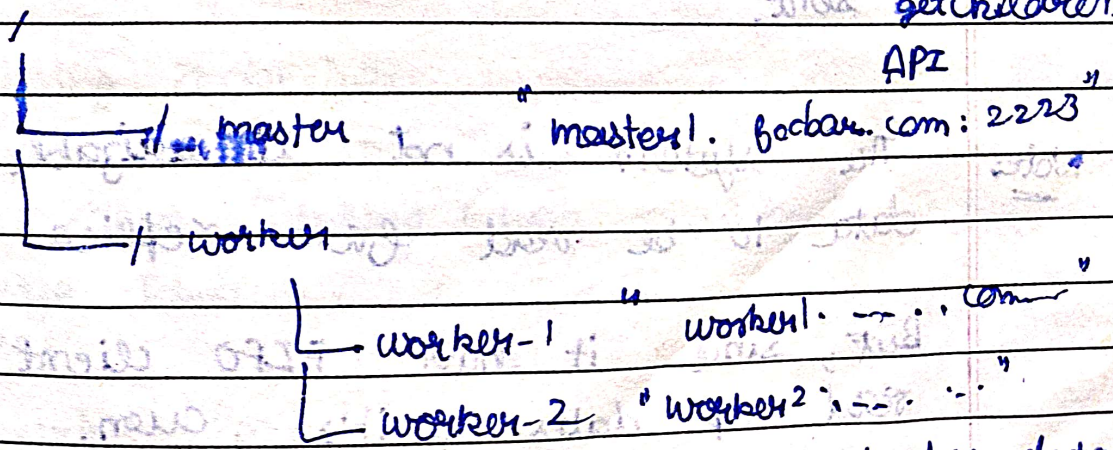 getchildren
/
API
/ master "master1. foobar.com: 2223"
/ worker
worker-1 "worker1. --- . . com"
worker-2 "worker2 . --- . . ."